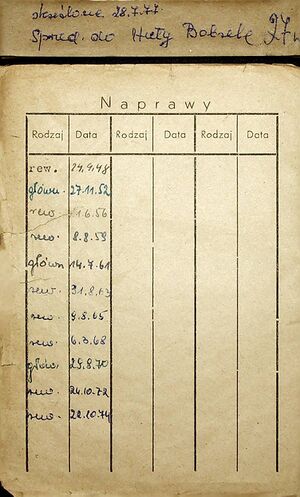 skreślone 28.7.77
Sprzed. do Huty Bobrek
Naprawy
Rodzaj Data Rodzaj Data Rodzaj Data
rew. 24.9.48
główn. 27.11.52
rew. 21.6.56
rew. 8.8.59
główn 14.7.61
rew. 31.8.63
rew. 9.8.65
rew. 6.3.68
główn. 29.8.70
rew. 24.10.72
rew. 22.10.74